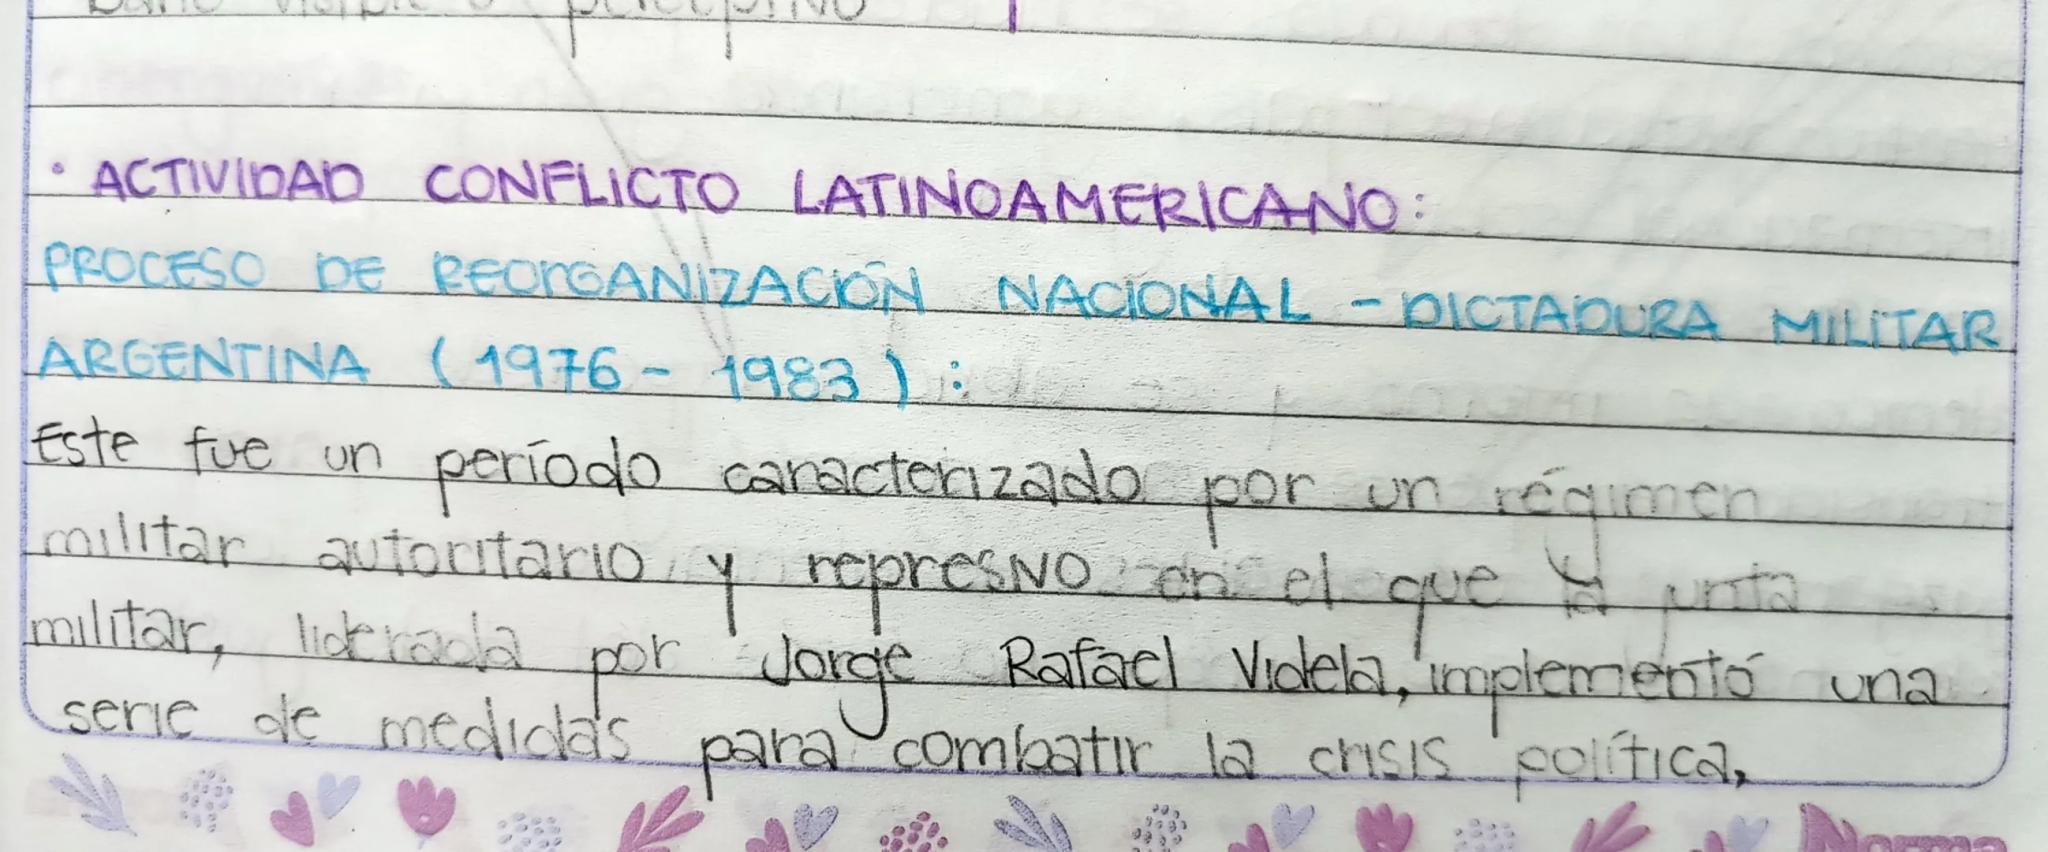 · ACTIVIDAD CONFLICTO LATINOAMERICANO:
PROCESO DE REORGANIZACIÓN NACIONAL - DICTADURA MILITAR
ARGENTINA (1976 - 1983):
Este fue un período caracterizado por un régimen
militar autoritario y represivo en el que la junta
militar, liderada por Jorge Rafael Videla, implementó una
serie de medidas para combatir la crisis política,
Norma